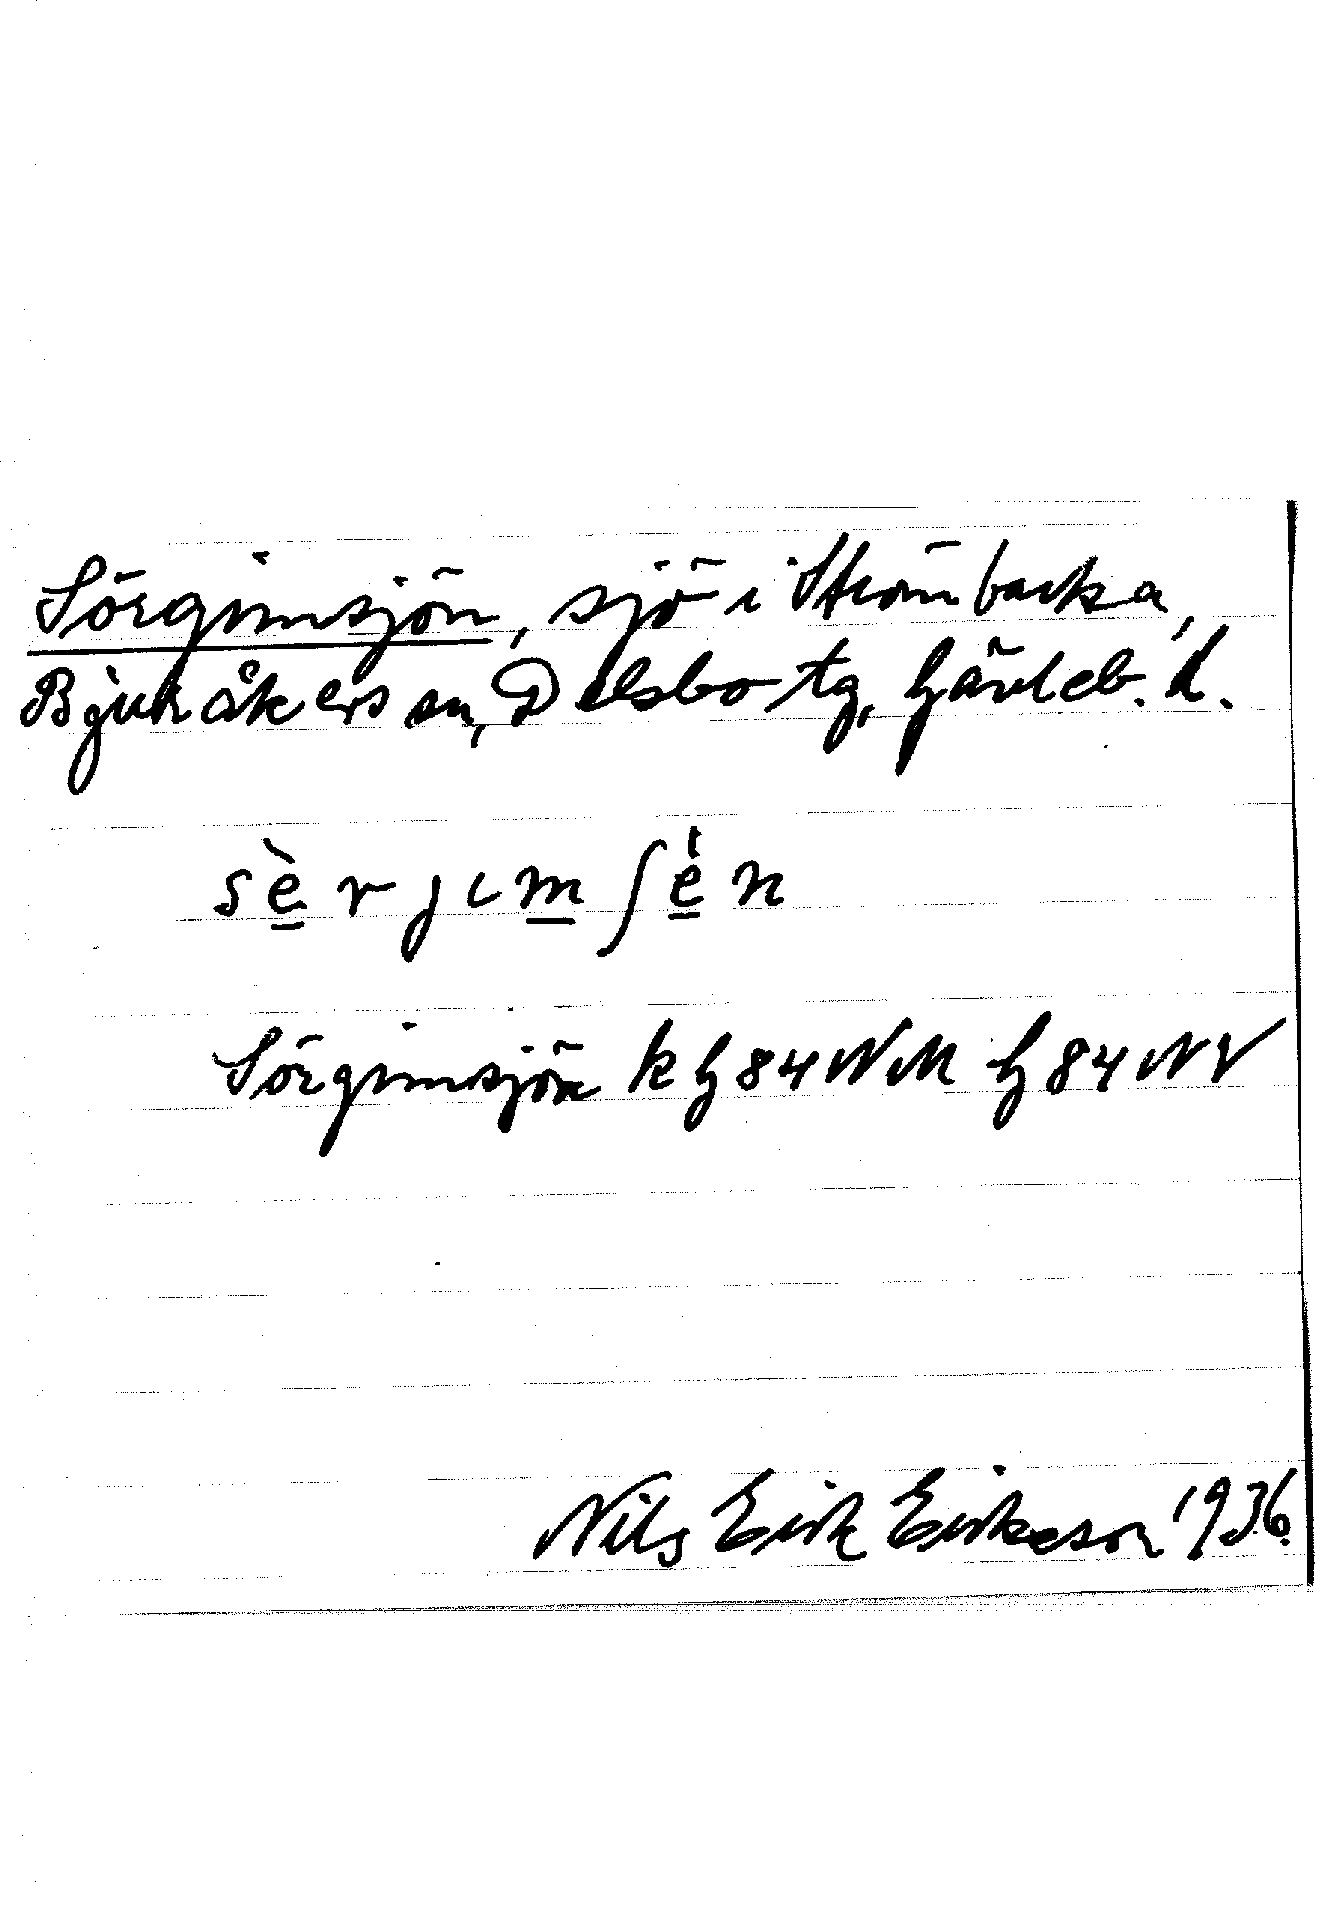 Sörgimsjön, sjö i Strömbacka,
Bjuråkers sn, Delsbo tg, Gävleb. l.
sè̱rjım̱ʃé̱n
Sörgimsjön k G84NM G84NV
Nils Erik Erikeson 1936.